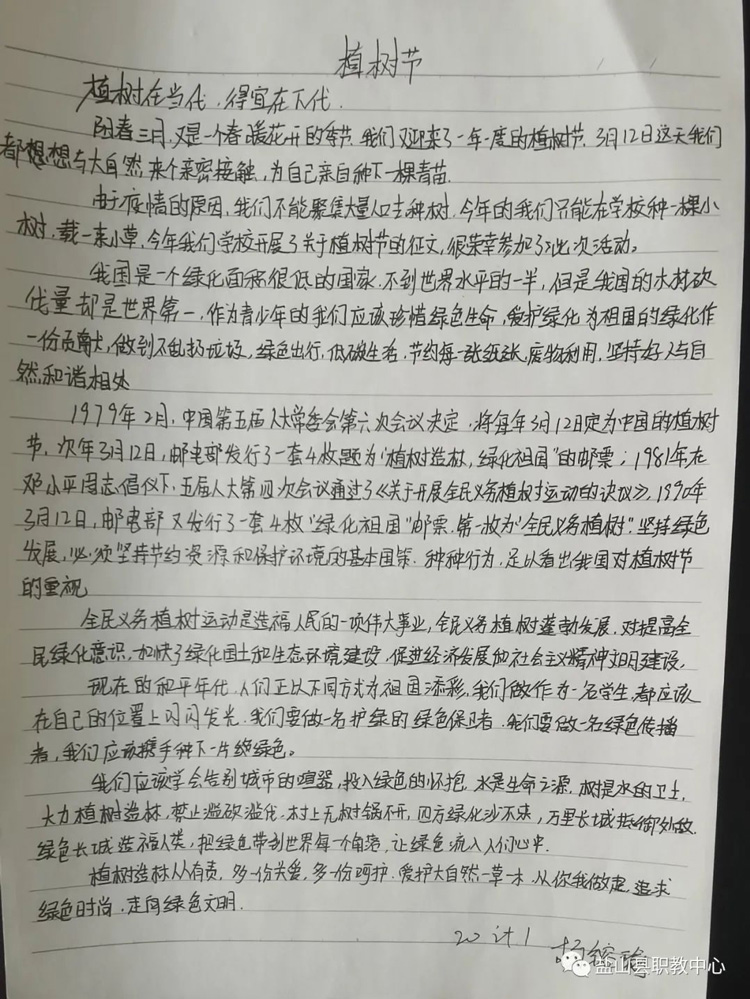 植树节
植树在当代，得宜在下代．
阳春三月，又是一个春暖花开的季节．我们又迎来了一年一度的植树节．3月12日这天我们
都想想与大自然来个亲密接触，为自己亲自种下一棵青苗．
由于疫情的原因，我们不能聚集大量人口去种树．今年的我们只能在学校种一棵小
树．载一束小草，今年我们学校开展了关于植树节的征文，很荣幸参加了此次活动。
我国是一个绿化面积很低的国家．不到世界水平的一半，但是我国的木材砍
伐量却是世界第一，作为青少年的我们应该珍惜绿色生命，爱护绿化为祖国的绿化作
一份贡献，做到不乱扔垃圾，绿色出行，低碳生活，节约每一张纸张，废物利用，坚持好人与自
然和谐相处
1979年2月，中国第五届人大常委会第六次会议决定，将每年3月12日定为中国的植树
节．次年3月12日，邮电部发行了一套4枚题为"植树造林，绿化祖国"的邮票；1981年在
邓小平同志倡仪下．五届人大第四次会议通过了《关于开展全民义务植树运动的决议》，1990年
3月12日，邮电部又发行了一套4枚"绿化祖国"邮票．第一枚为"全民义务植树"．坚持绿色
发展，必须坚持节约资源和保护环境的基本国策．种种行为，足以看出我国对植树节
的重视
全民义务植树运动是造福人民的一项伟大事业，全民义务植树蓬勃发展，对提高全
民绿化意识，加快了绿化国土和生态环境建设，促进经济发展和社会主义精神文明建设，
现在的和平年代．人们正以不同方式为祖国添彩，我们做作为一名学生，都应该
在自己的位置上闪闪发光．我们要做一名护绿的绿色保卫者．我们要做一名绿色传播
者，我们应该携手种下一片绿色。
我们应该学会告别城市的喧嚣，投入绿色的怀抱．水是生命之源．树是水的卫士，
大力植树造林，禁止滥砍滥伐．村上无树锅不开，四方绿化沙不来，万里长城抵御外敌．
绿色长城造福人类，把绿色带到世界每一个角落，让绿色流入人们心中．
植树造林从有责，多一份关爱，多一份呵护．爱护大自然一草一木．从你我做起，追求
绿色时尚，走向绿色文明．
20 计1 杨
盐山县职教中心